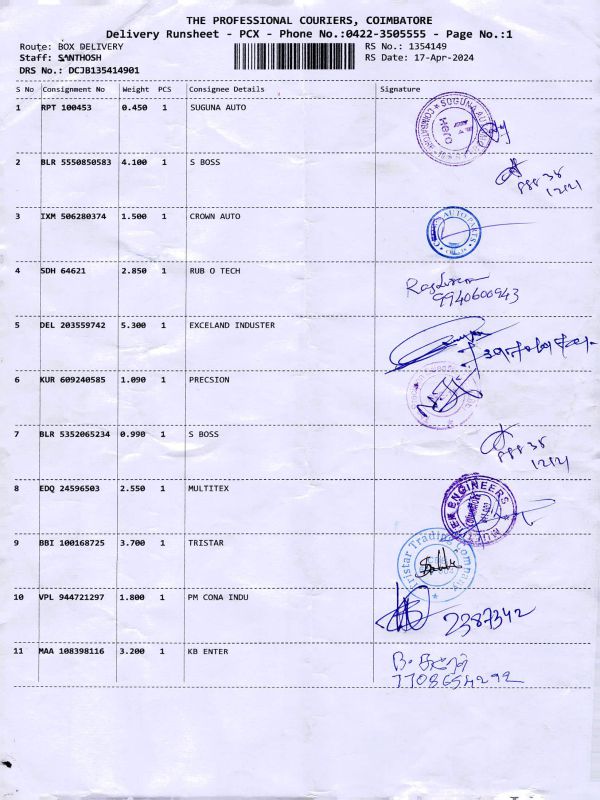 THE PROFESSIONAL COURIERS, COIMBATORE
Delivery Runsheet - PCX - Phone No.:0422-3505555 - Page No.:1
Route: BOX DELIVERY RS No.: 1354149
Staff: SANTHOSH RS Date: 17-Apr-2024
DRS No.: DCJB135414901
S No Consignment No Weight PCS Consignee Details Signature
1 RPT 100453 0.450 1 SUGUNA AUTO
SUGUNA AU
2 BLR 5550850583 4.100 1 S BOSS
1212
3 IXM 506280374 1.500 1 CROWN AUTO
AUTO PARTS
4 SDH 64621 2.850 1 RUB O TECH
9940600943
5 DEL 203559742 5.300 1 EXCELAND INDUSTER
6 KUR 609240585 1.090 1 PRECSION
7 BLR 5352065234 0.990 1 S BOSS
1212
8 EDQ 24596503 2.550 1 MULTITEX
ENGINEERS
9 BBI 100168725 3.700 1 TRISTAR
Tristar Trading Company
10 VPL 944721297 1.800 1 PM CONA INDU
2387342
11 MAA 108398116 3.200 1 KB ENTER
7708654292